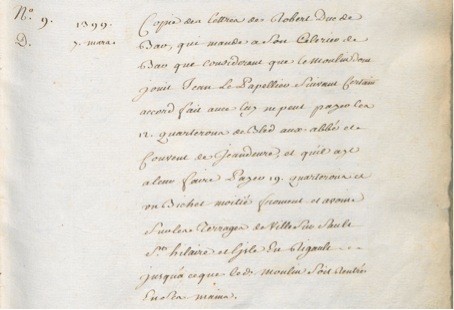 N.º 9. 1399. Copie des lettres de Robert Duc de
D. 7. mars. Bar, qui mande a son Celerier de
Bar que considerant que le Moulin dont
jouit Jean Le Papellier suivant certain
accord fait avec luy ne peut payer les
12. quarterons de Bled aux abbé et
Couvent de Jeandeure, et qu'il ayt
a leur faire Payer 19. quarterons et
un Bichet moitié froment et avoine
sur les Terrages de Ville du Saulx
St. hilaire et
jusqu'à ce que led. moulin soit rentré
en ses mains.